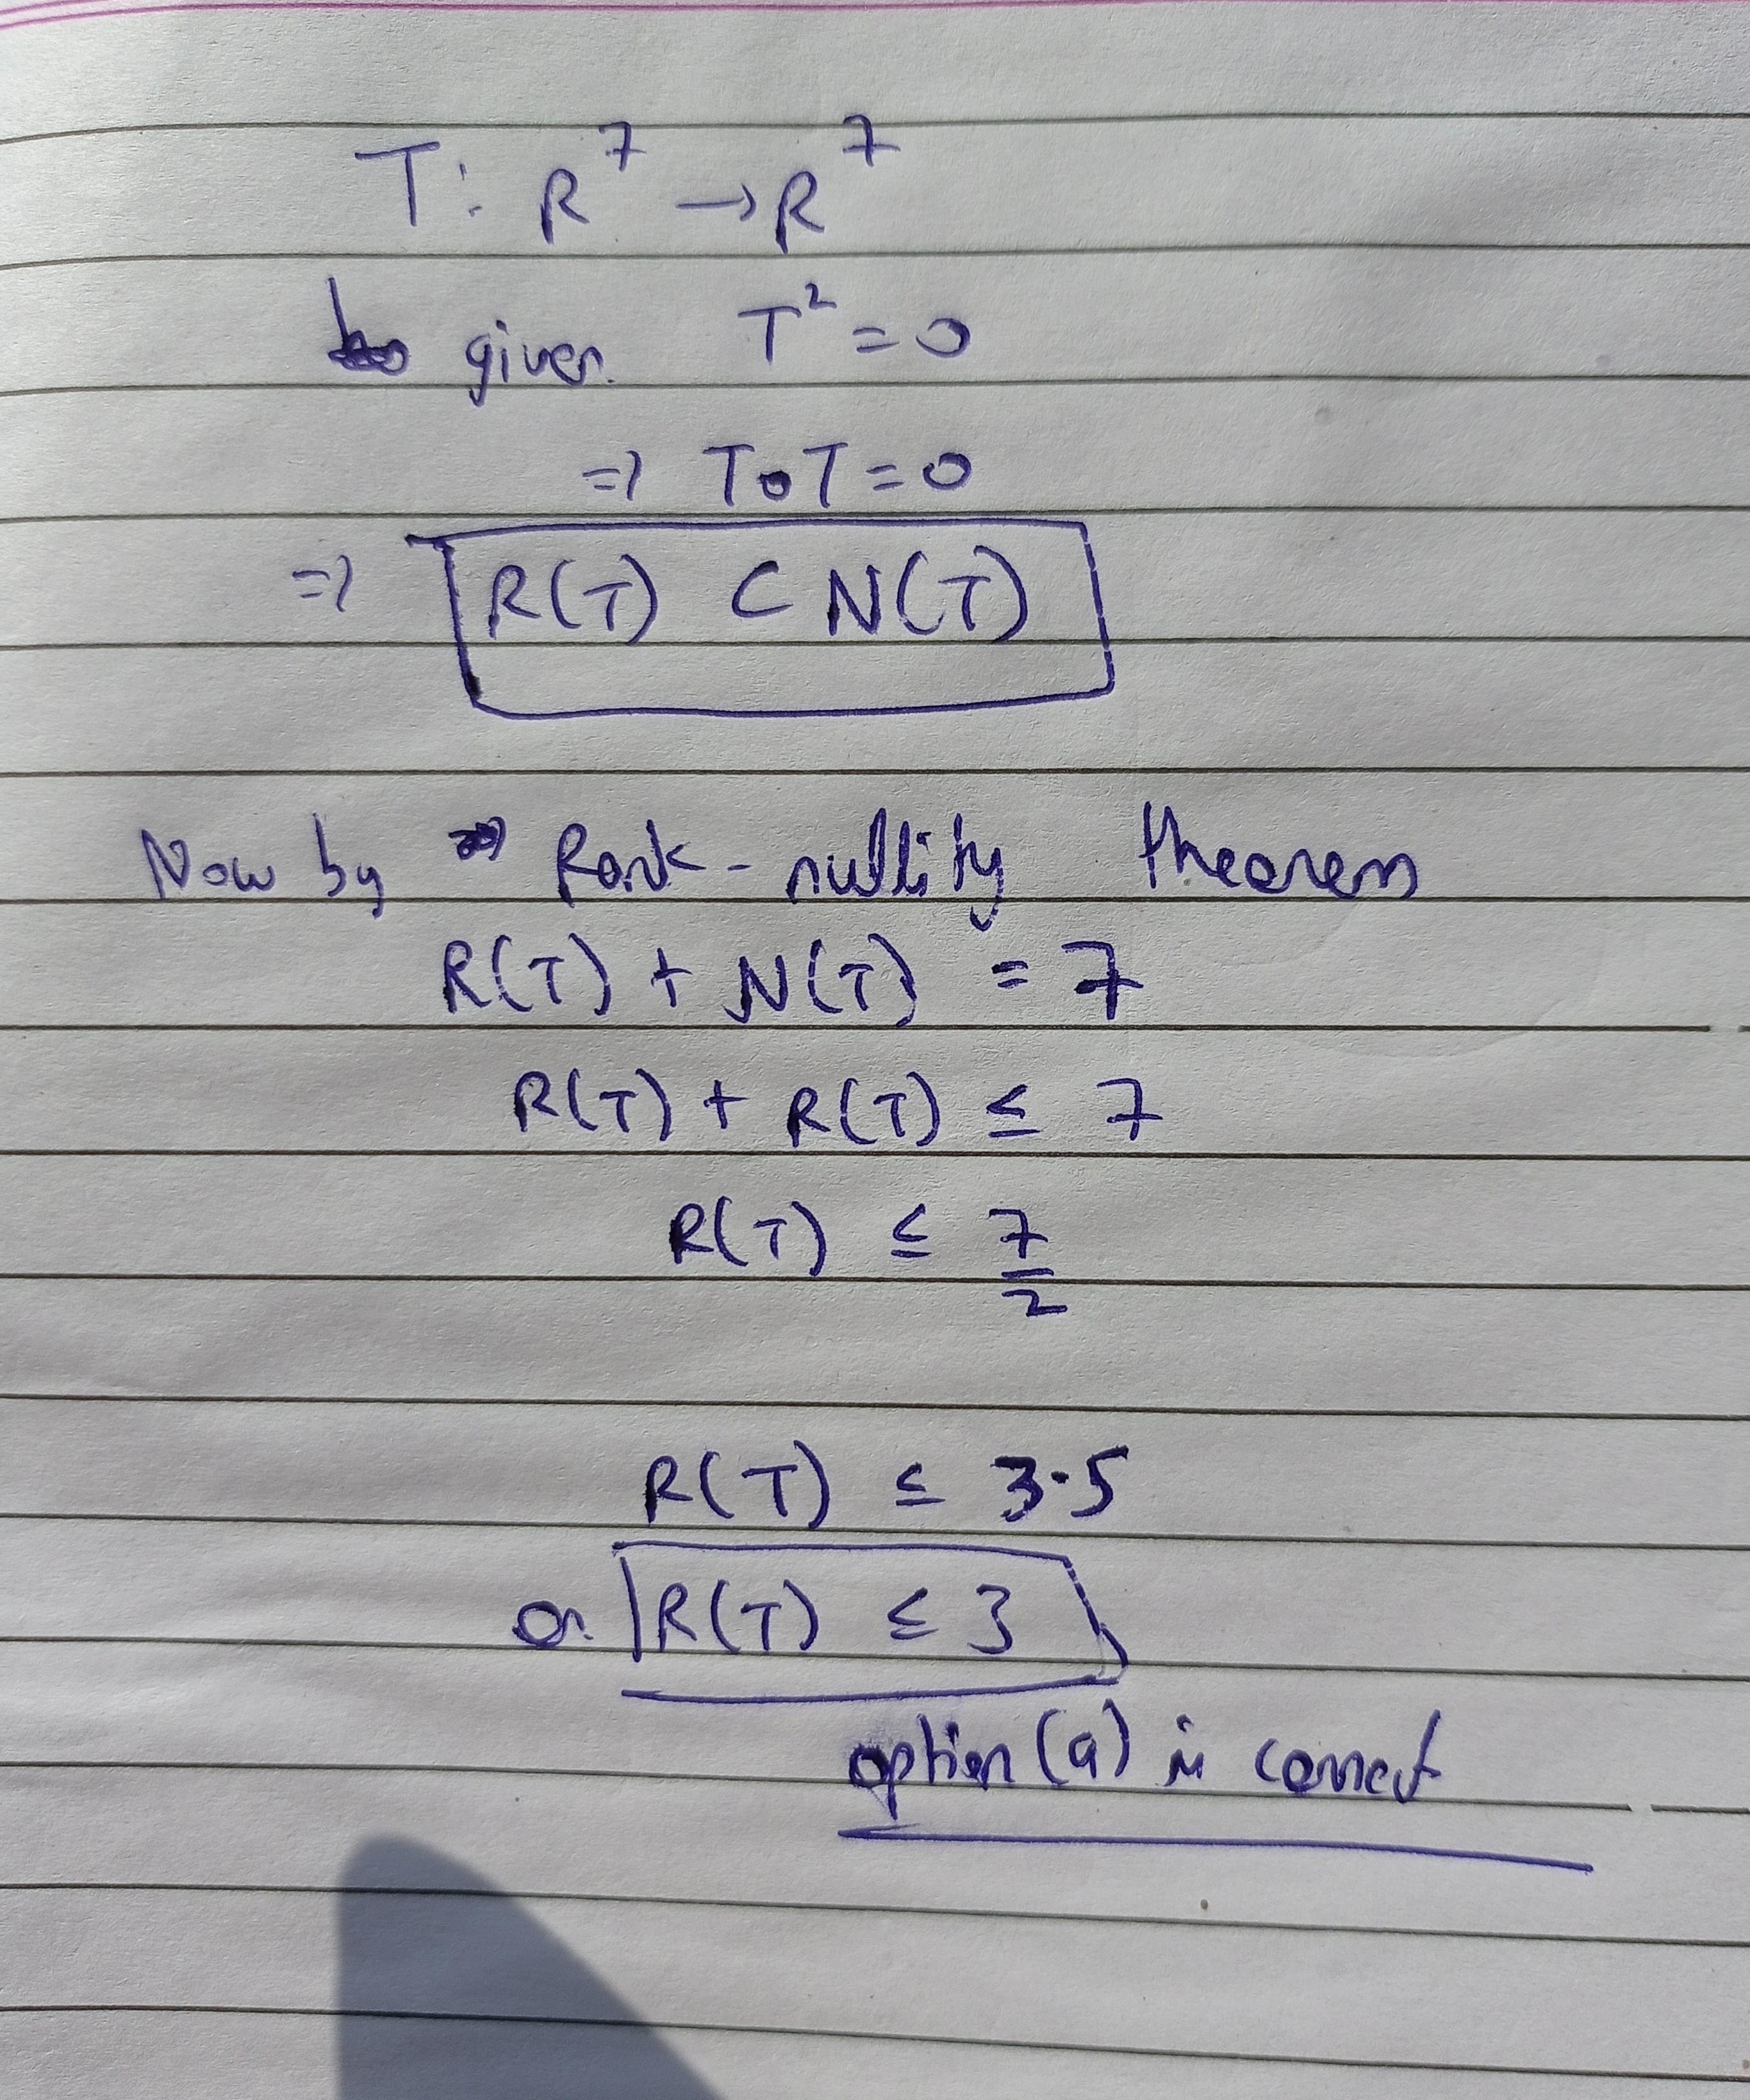 T: R⁷ → R⁷
given T² = 0
=> T∘T = 0
=> R(T) ⊂ N(T)
Now by Rank-nullity theorem
R(T) + N(T) = 7
R(T) + R(T) ≤ 7
R(T) ≤ 7/2
R(T) ≤ 3.5
or R(T) ≤ 3
option (a) is correct